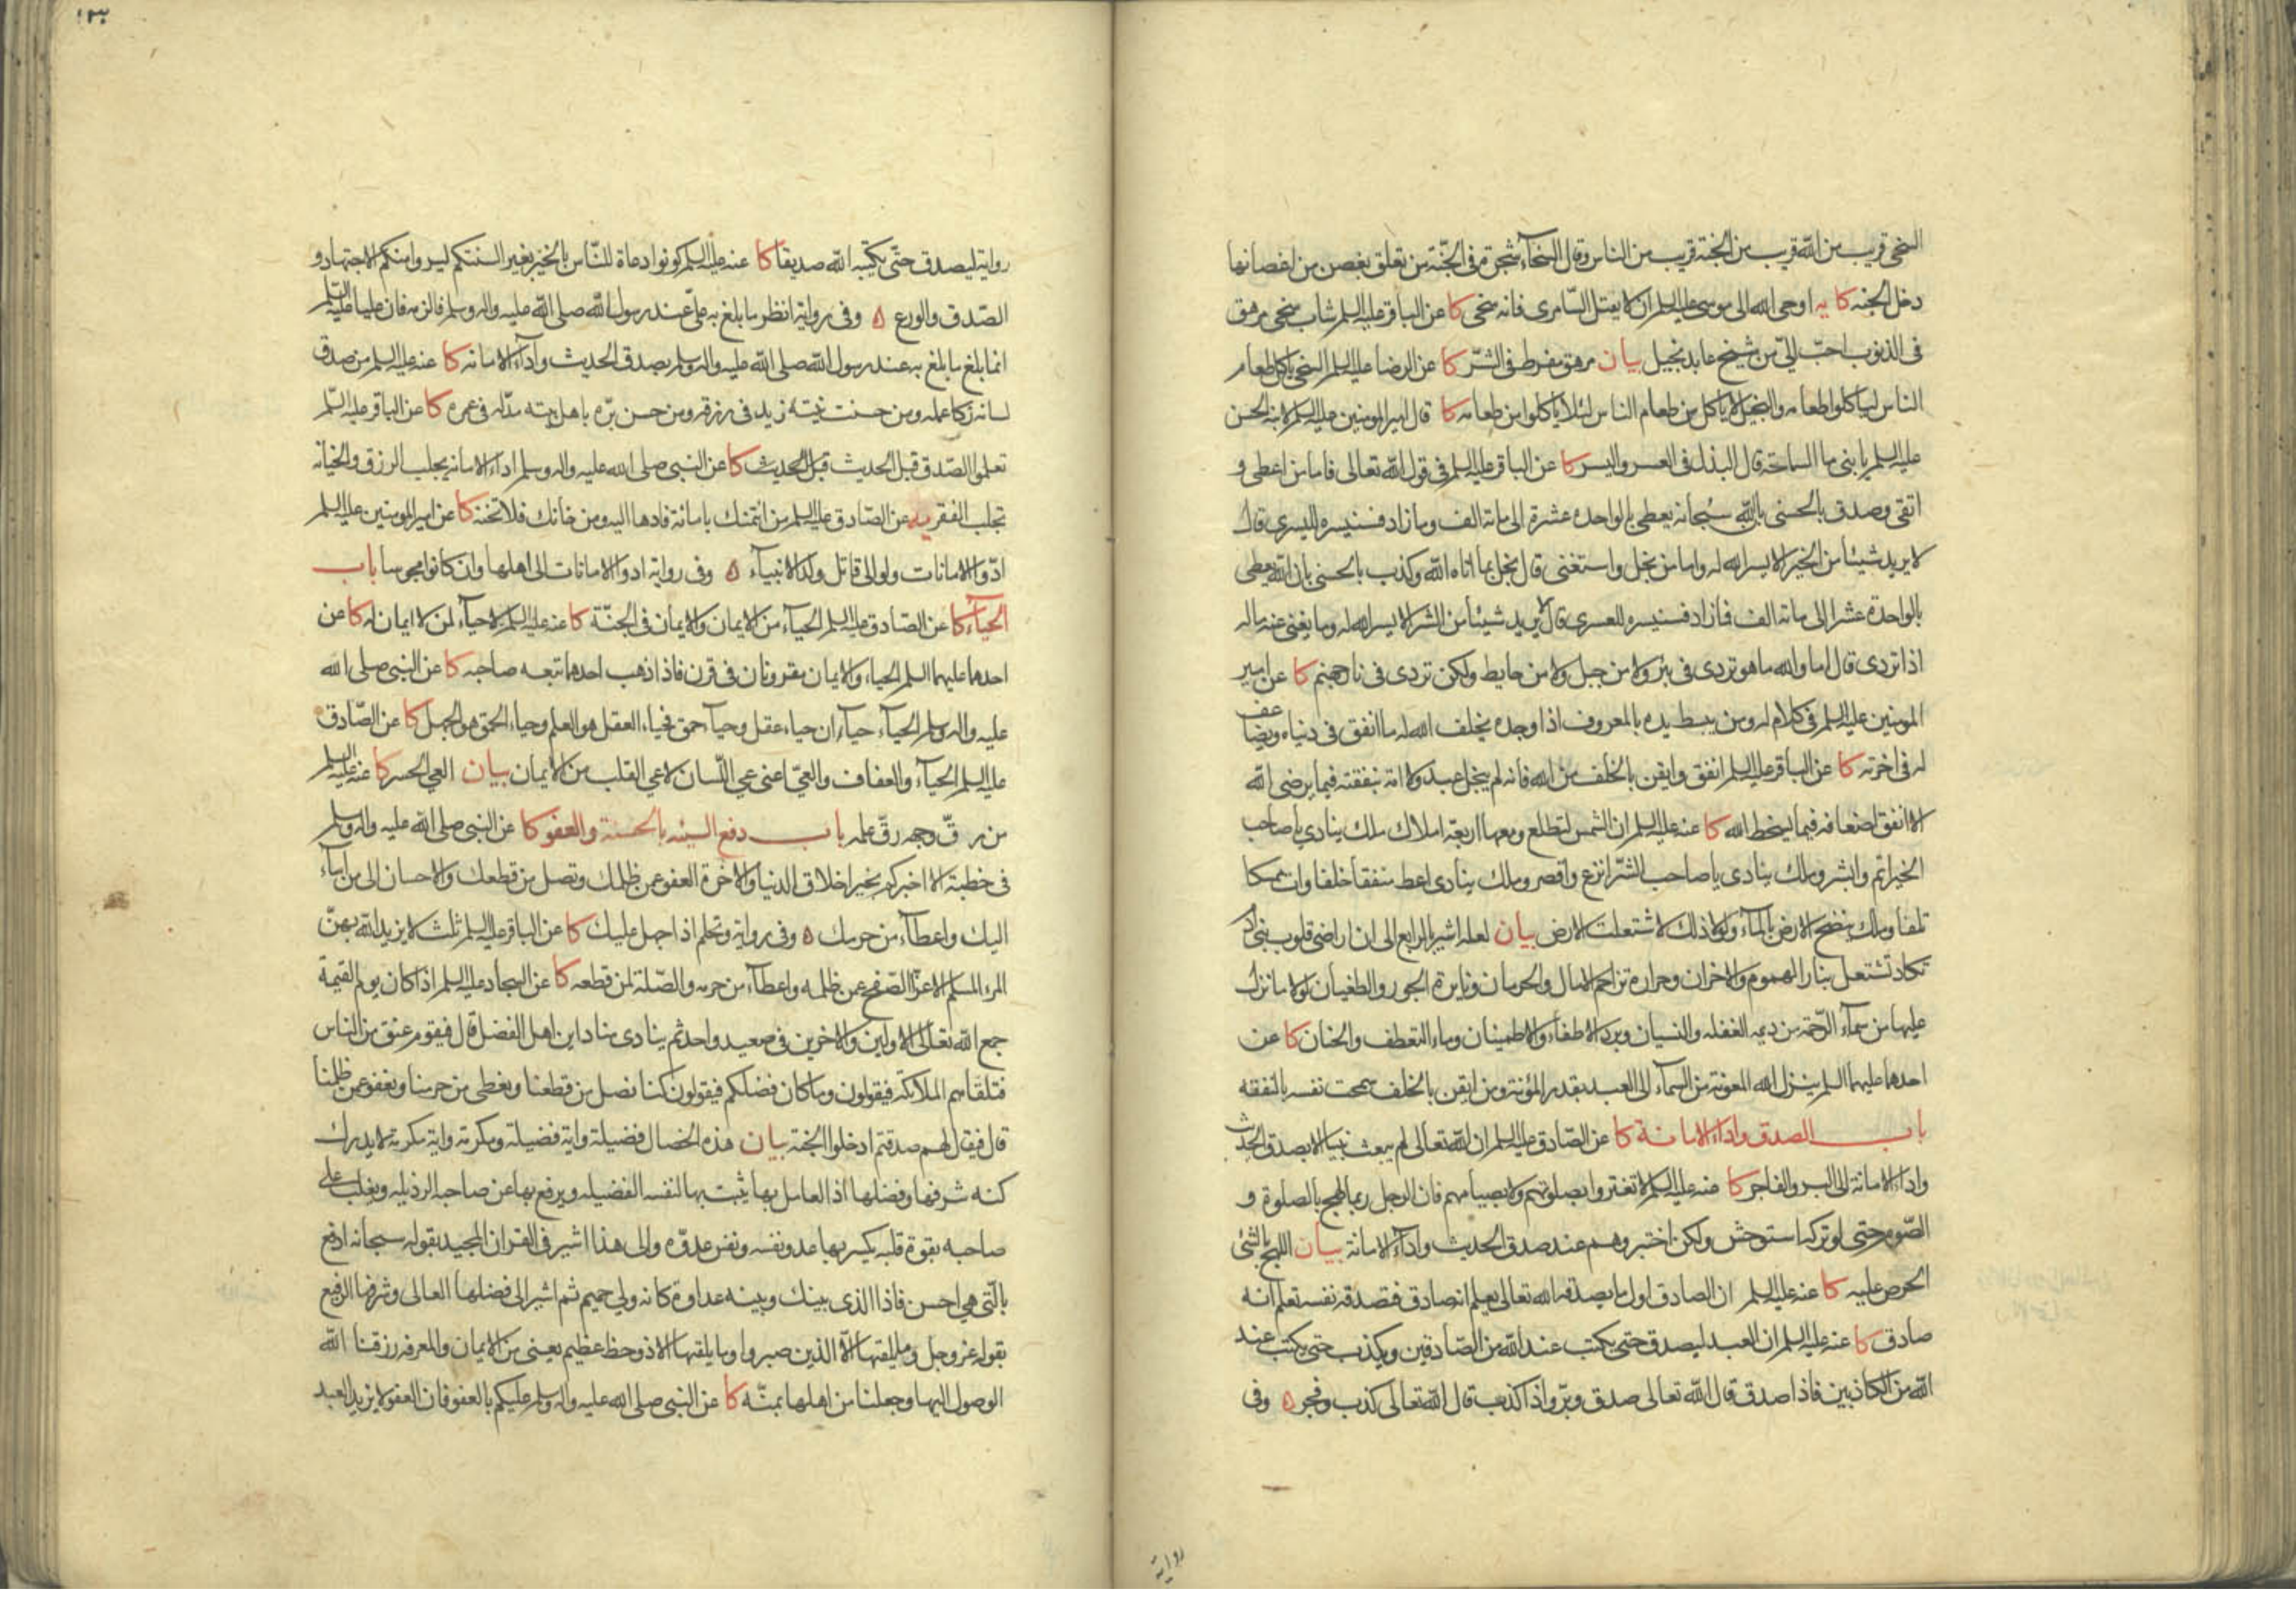 السخی قریب من الله قریب من الجنة قریب من الناس وقال السخآء شجرة فی الجنّة من تعلق بغصن من اغصانها
دخل الجنه کا یه اوحی الله الی موسی علیه السلم ان لا یقتل السّامری فانه سخی کا عن الباقر علیه السلم شاب سخی مرهق
فی الذنوب احبّ الیّ من شیخ عابد بخیل بیان مرهق مفرط فی الشرّ کا عن الرضا علیه السلم السخی یاکل طعام
الناس لیاکلوا طعامه والبخیل لا یاکل من طعام الناس لئلا یاکلوا من طعامه کا قال امیر المومنین علیه السلم لابنه الحسن
علیه السلم یا بنی ما السماحة قال البذل فی العسر والیسر کا عن الباقر علیه السلم فی قول الله تعالی فاما من اعطی و
اتقی وصدق بالحسنی بانّ الله سبحانه یعطی بالواحده عشرة الی مائة الف وما زاد فسنیسره للیسری قال
لا یرید شیئا من الخیر الا یسر الله له واما من بخل واستغنی قال بخل بما اتاه الله وکذب بالحسنی بان الله یعطی
بالواحدة عشرا الی مائة الف فما زاد فسنیسره للعسری قال لا یرید شیئا من الشر الا یسر الله له وما یغنی عنه ماله
اذا تردی قال اما والله ما هو تردی فی بئر ولا من جبل ولا من حایط ولکن تردی فی نار جهنم کا عن امیر
المومنین علیه السلم فی کلام له ومن یبسط یده بالمعروف اذا وجده یخلف الله له ما انفق فی دنیاه ویضاعف
له فی اخرته کا عن الباقر علیه السلم انفق وایقن بالخلف من الله فانه لم یبخل عبد ولا امة بنفقته فیما یرضی الله
الا انفق اضعافه فیما یسخط الله کا عنه علیه السلم ان الشمس لتطلع ومعها اربعة املاک ملک ینادی یا صاحب
الخیر اتم وابشر وملک ینادی یا صاحب الشرّ انزع واقصر وملک ینادی اعط منفقا خلفا وات ممسکا
تلفا وملک ینضح الارض بالماء ولولا ذلک لاشتعلت الارض بیان لعله اشیر بالرابع الی ان اراضی قلوب بنی ادم
تکاد تشتعل بنار الهموم والاحزان وحرارة تزاحم الامال والحرمان ونایرة الجور والطغیان لولا ما نزل
علیها من سمآء الرّحمة من دیمه الغفله والنسیان وبرد الاطفاء والاطمینان وماء التعطف والحنان کا عن
احدهما علیهما السلم ینزل الله المعونة من السمآء الی العبد بقدر المؤنة ومن ایقن بالخلف سمحت نفسه بالنفقه
باب الصدق واداء الامانة کا عن الصّادق علیه السلم ان الله تعالی لم یبعث نبیا الا بصدق الحدیث
واداء الامانة الی البر والفاجر کا عنه علیه السلم لا تغتروا بصلوتهم ولا بصیامهم فان الرجل ربما لهج بالصلوة و
الصّوم حتی لو ترکه استوحش ولکن اختبروهم عند صدق الحدیث واداء الامانة بیان اللهج بالشئ
الحرص علیه کا عنه علیه السلم ان الصادق اول ما یصدقه الله تعالی یعلم انه صادق فتصدقه نفسه تعلم انه
صادق کا عنه علیه السلم ان العبد لیصدق حتی یکتب عند الله من الصّادقین ویکذب حتی یکتب عند
الله من الکاذبین فاذا صدق قال الله تعالی صدق وبرّ واذا کذب قال الله تعالی کذب وفجر ۵ وفی
روایة
۱۳۰
روایة لیصدق حتّی یکتبه الله صدیقا کا عنه علیه السلم کونوا دعاة للنّاس بالخیر بغیر السنتکم لیروا منکم الاجتهاد و
الصّدق والورع ۵ وفی روایة انظر ما بلغ به علیّ عند رسول الله صلی الله علیه واله وسلم فالزمه فان علیا علیه السّلم
انما بلغ ما بلغ به عند رسول الله صلی الله علیه واله وسلم بصدق الحدیث وادآء الامانة کا عنه علیه السلم من صدق
لسانه زکا عمله ومن حسنت نیّته زید فی رزقه ومن حسن برّه باهل بیته مدّ له فی عمره کا عن الباقر علیه السّلم
تعلموا الصّدق قبل الحدیث قبل الحدیث کا عن النبی صلی الله علیه واله وسلم اداء الامانه یجلب الرزق والخیانة
تجلب الفقر یه عن الصّادق علیه السلم من ائتمنک بامانة فادها الیه ومن خانک فلا تخنه کا عن امیر المومنین علیه السلم
ادّوا الامانات ولو الی قاتل ولد الانبیآء ۵ وفی روایة ادوا الامانات الی اهلها وان کانوا مجوسا باب
الحیآء کا عن الصّادق علیه السلم الحیآء من الایمان والایمان فی الجنّة کا عنه علیه السلم لا حیآء لمن لا ایمان له کا عن
احدهما علیهما السلم الحیاء والایمان مقرونان فی قرن فاذا ذهب احدهما تبعه صاحبه کا عن النبی صلی الله
علیه واله وسلم الحیآء حیاآن حیاء عقل وحیآء حمق فحیاء العقل هو العلم وحیاء الحمق هو الجهل کا عن الصّادق
علیه السلم الحیآء والعفاف والعیّ اعنی عی اللّسان لا عی القلب من الایمان بیان العی الحصر کا عنه علیه السلم
من رقّ وجهه رقّ علمه باب دفع السیئه بالحسنة والعفو کا عن النبی صلی الله علیه واله وسلم
فی خطبة الا اخبرکم بخیر اخلاق الدنیا والاخرة العفو عن ظلمک وتصل من قطعک والاحسان الی من اسآء
الیک واعطآء من حرمک ۵ وفی روایة وتحلم اذا جهل علیک کا عن الباقر علیه السلم ثلث لا یزید الله بهنّ
المرء المسلم الا عزّا الصّفح عن ظلمه واعطآء من حرمه والصّلة لمن قطعه کا عن السجاد علیه السلم اذا کان یوم القیمة
جمع الله تعالی الاولین والاخرین فی صعید واحد ثم ینادی مناد این اهل الفضل قال فیقوم عنق من الناس
فتلقاهم الملائکة فیقولون وما کان فضلکم فیقولون کنا نصل من قطعنا ونعطی من حرمنا ونعفو عن ظلمنا
قال فیقال لهم صدقتم ادخلوا الجنة بیان هذه الخصال فضیلة وایة فضیلة ومکرمة وایة مکرمة لا یدرک
کنه شرفها وفضلها اذ العامل بها یثبت بها لنفسه الفضیله ویرفع بها عن صاحبه الرذیله ویغلب علی
صاحبه بقوة قلبه یکسر بها عدو نفسه ونفس عدوّه والی هذا اشیر فی القران المجید بقوله سبحانه ادفع
بالّتی هی احسن فاذا الذی بینک وبینه عداوة کانه ولی حمیم ثم اشیر الی فضلها العالی وشرفها الرفیع
بقوله عز وجل وما یلقیها الّا الذین صبروا وما یلقیها الا ذو حظ عظیم یعنی من الایمان والمعرفه رزقنا الله
الوصول الیها وجعلنا من اهلها بمنّه کا عن النبی صلی الله علیه واله وسلم علیکم بالعفو فان العفو لا یزید العبد